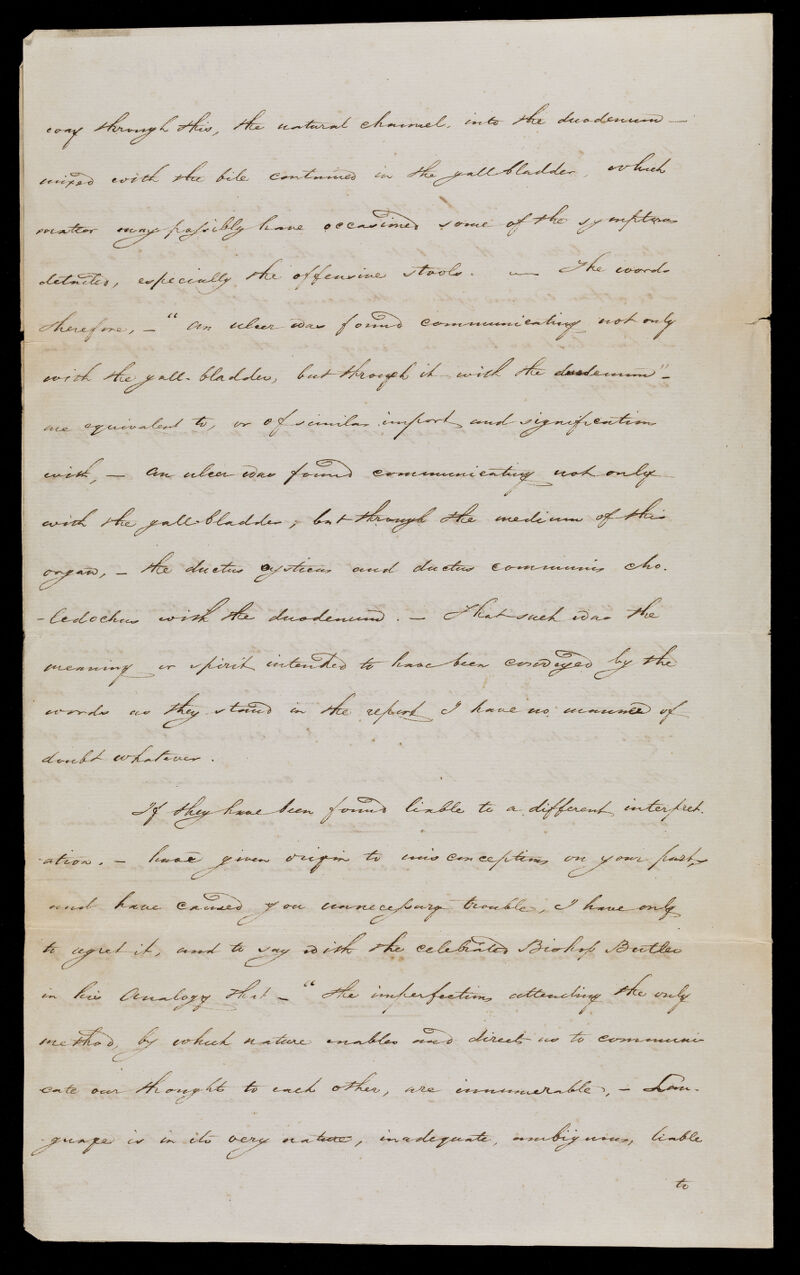 way through this, the natural channel, into the duodenum —
mixed with the bile contained in the gall bladder, which
matter may possibly have occasioned some of the symptoms
detailed, especially the offensive stools. — The words
therefore, — "An ulcer was found communicating not only
with the gall-bladder, but through it with the duodenum" -
are equivalent to, or of similar import and signification
with, — An ulcer was found communicating not only
with the gall-bladder, but through the medium of this
organ, — the ductus cysticus and ductus communis cho-
-ledochus with the duodenum. — That such was the
meaning or spirit intended to have been conveyed by the
words as they stand in the report I have no manner of
doubt whatever.
If they have been found liable to a different interpret-
-ation. — have given origin to misconceptions on your part,
and have caused you unnecessary trouble, I have only
to regret it, and to say with the celebrated Bishop Butler
in his Analogy that — "the imperfections attending the only
method, by which nature enables and directs us to communi-
cate our thoughts to each other, are innumerable, — Lan-
-guage is in its very nature, inadequate, ambiguous, liable
to